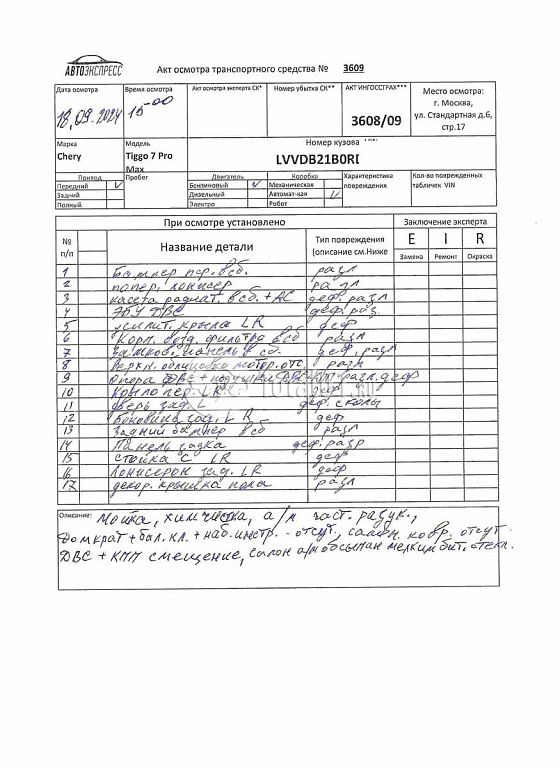 АВТОЭКСПРЕСС
Акт осмотра транспортного средства № 3609
Дата осмотра Время осмотра Акт осмотра эксперта СК* Номер убытка СК** АКТ ИНГОССТРАХ*** Место осмотра:
18.09.2024 15-00 3608/09 г. Москва,
ул. Стандартная д.6,
стр.17
Марка Модель Номер кузова
Chery Tiggo 7 Pro Max LVVDB21B0RI
Привод Пробег Двигатель Коробка Характеристика повреждения Кол-во поврежденных табличек VIN
Передний V Бензиновый V Механическая
Задний Дизельный Автомат-кая V
Полный Электро Робот
При осмотре установлено Заключение эксперта
№ п/п Название детали Тип повреждения (описание см.Ниже E I R
Замена Ремонт Окраска
1 Бампер пер. в сб. разл
2 попер. лонжер разл
3 касета радиат. в сб. + АС деф. разл
4 ЭБУ ДВС деф. раз.
5 усилит. крыла LR деф
6 Корп. возд. фильтра в сб разл
7 Замков. панель в сб. деф. разл
8 Верхн. облицовка мотор. отс разл
9 Опора ДВС + подушка разл. деф
10 Крыло пер. LR деф
11 Дверь зад. L деф. сколы
12 Боковина зад. LR деф
13 Задний бампер в сб разл
14 Панель задка деф. разр
15 стойка С LR деф
16 Лонжерон зад. LR деф
17 декор. крышка пола разл
Описание: Мойка, химчистка, а/м част. разук.,
Домкрат + бал. кл. + наб. инстр. - отсут, салон. ковр. отсут.
ДВС + КПП смещение, салон а/м обсыпан мелким бит. стекл.